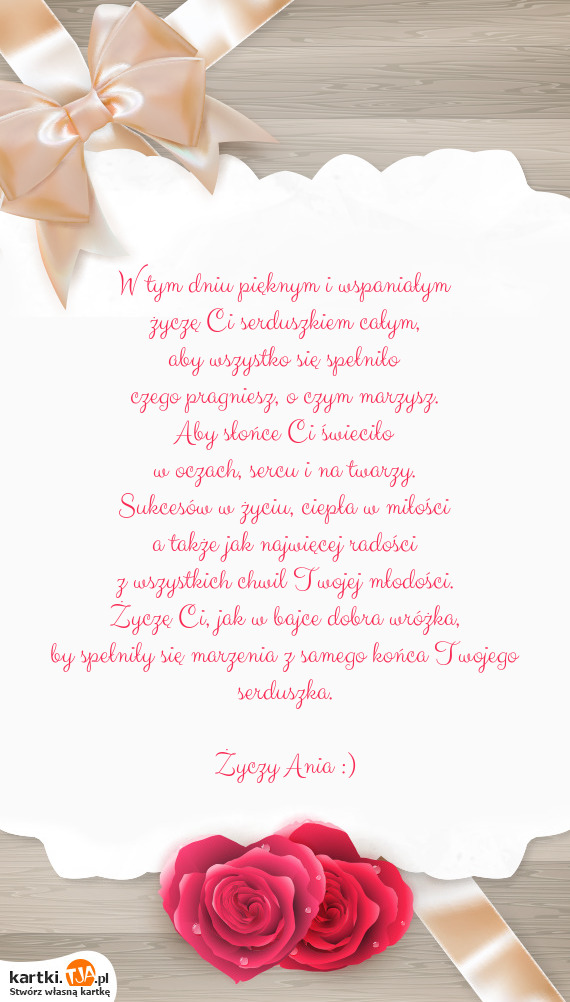 W tym dniu pięknym i wspaniałym
życzę Ci serduszkiem całym,
aby wszystko się spełniło
czego pragniesz, o czym marzysz.
Aby słońce Ci świeciło
w oczach, sercu i na twarzy.
Sukcesów w życiu, ciepła w miłości
a także jak najwięcej radości
z wszystkich chwil Twojej młodości.
Życzę Ci, jak w bajce dobra wróżka,
by spełniły się marzenia z samego końca Twojego
serduszka.
Życzy Ania :)
kartki.TJA.pl
Stwórz własną kartkę